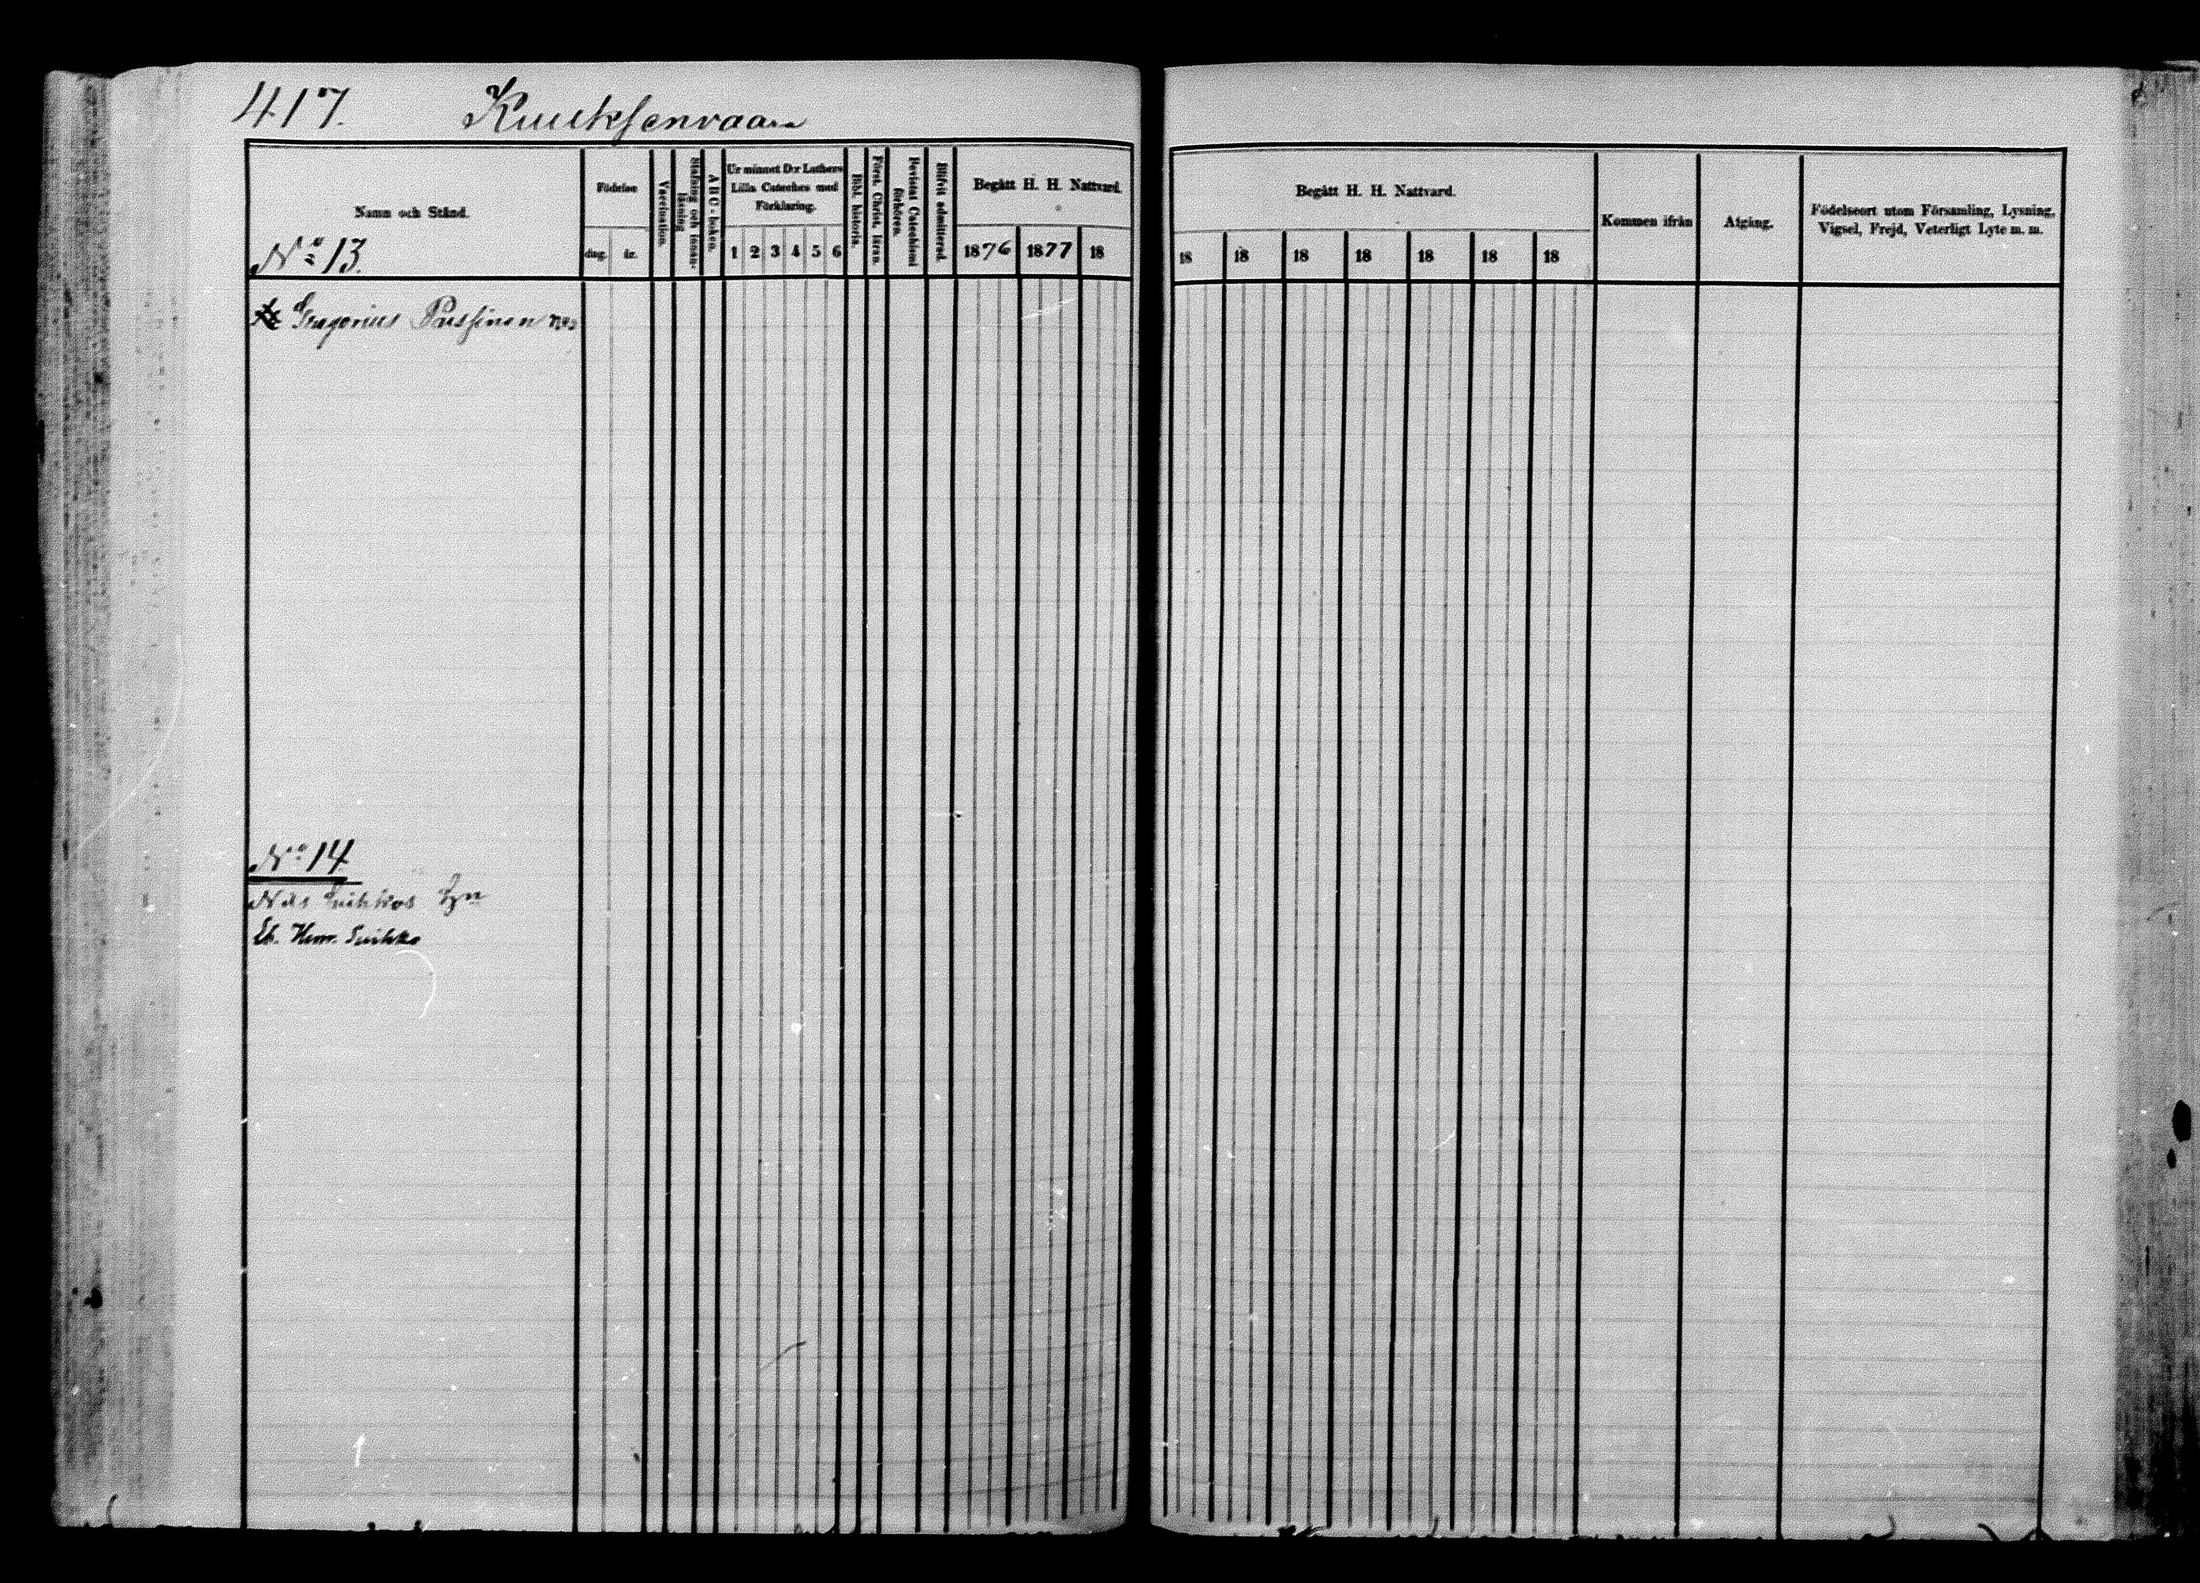 417. Kuuksenvaara
Namn och Stånd.
Födelse
dag. år.
Vaccination.
Stafning och innan-läsning
A B C-boken.
Ur minnet D:r Luthers Lilla Cateches med Förklaring.
1 2 3 4 5 6
Bibl. historia.
Först. Christ. läran.
Bevistat Catechismi förhören.
Blifvit admitterad.
Begått H. H. Nattvard.
1876 1877 18
Begått H. H. Nattvard.
18 18 18 18 18 18 18
Kommen ifrån
Afgång.
Födelseort utom Församling, Lysning, Vigsel, Frejd, Veterligt Lyte m. m.
No 13.
Gregorius Pussinen
No 14
Nils
Henr. Suihko